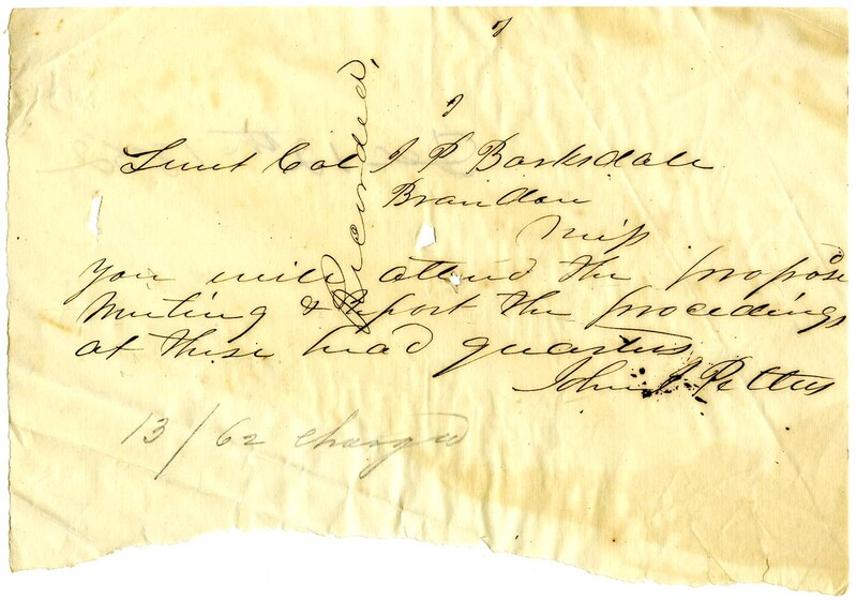 Lieut Col J P Barksdale
Brandon
Miss
You will attend the propose
Meeting & report the procedings
at these head quarters
John J Pettus
13/62 charged